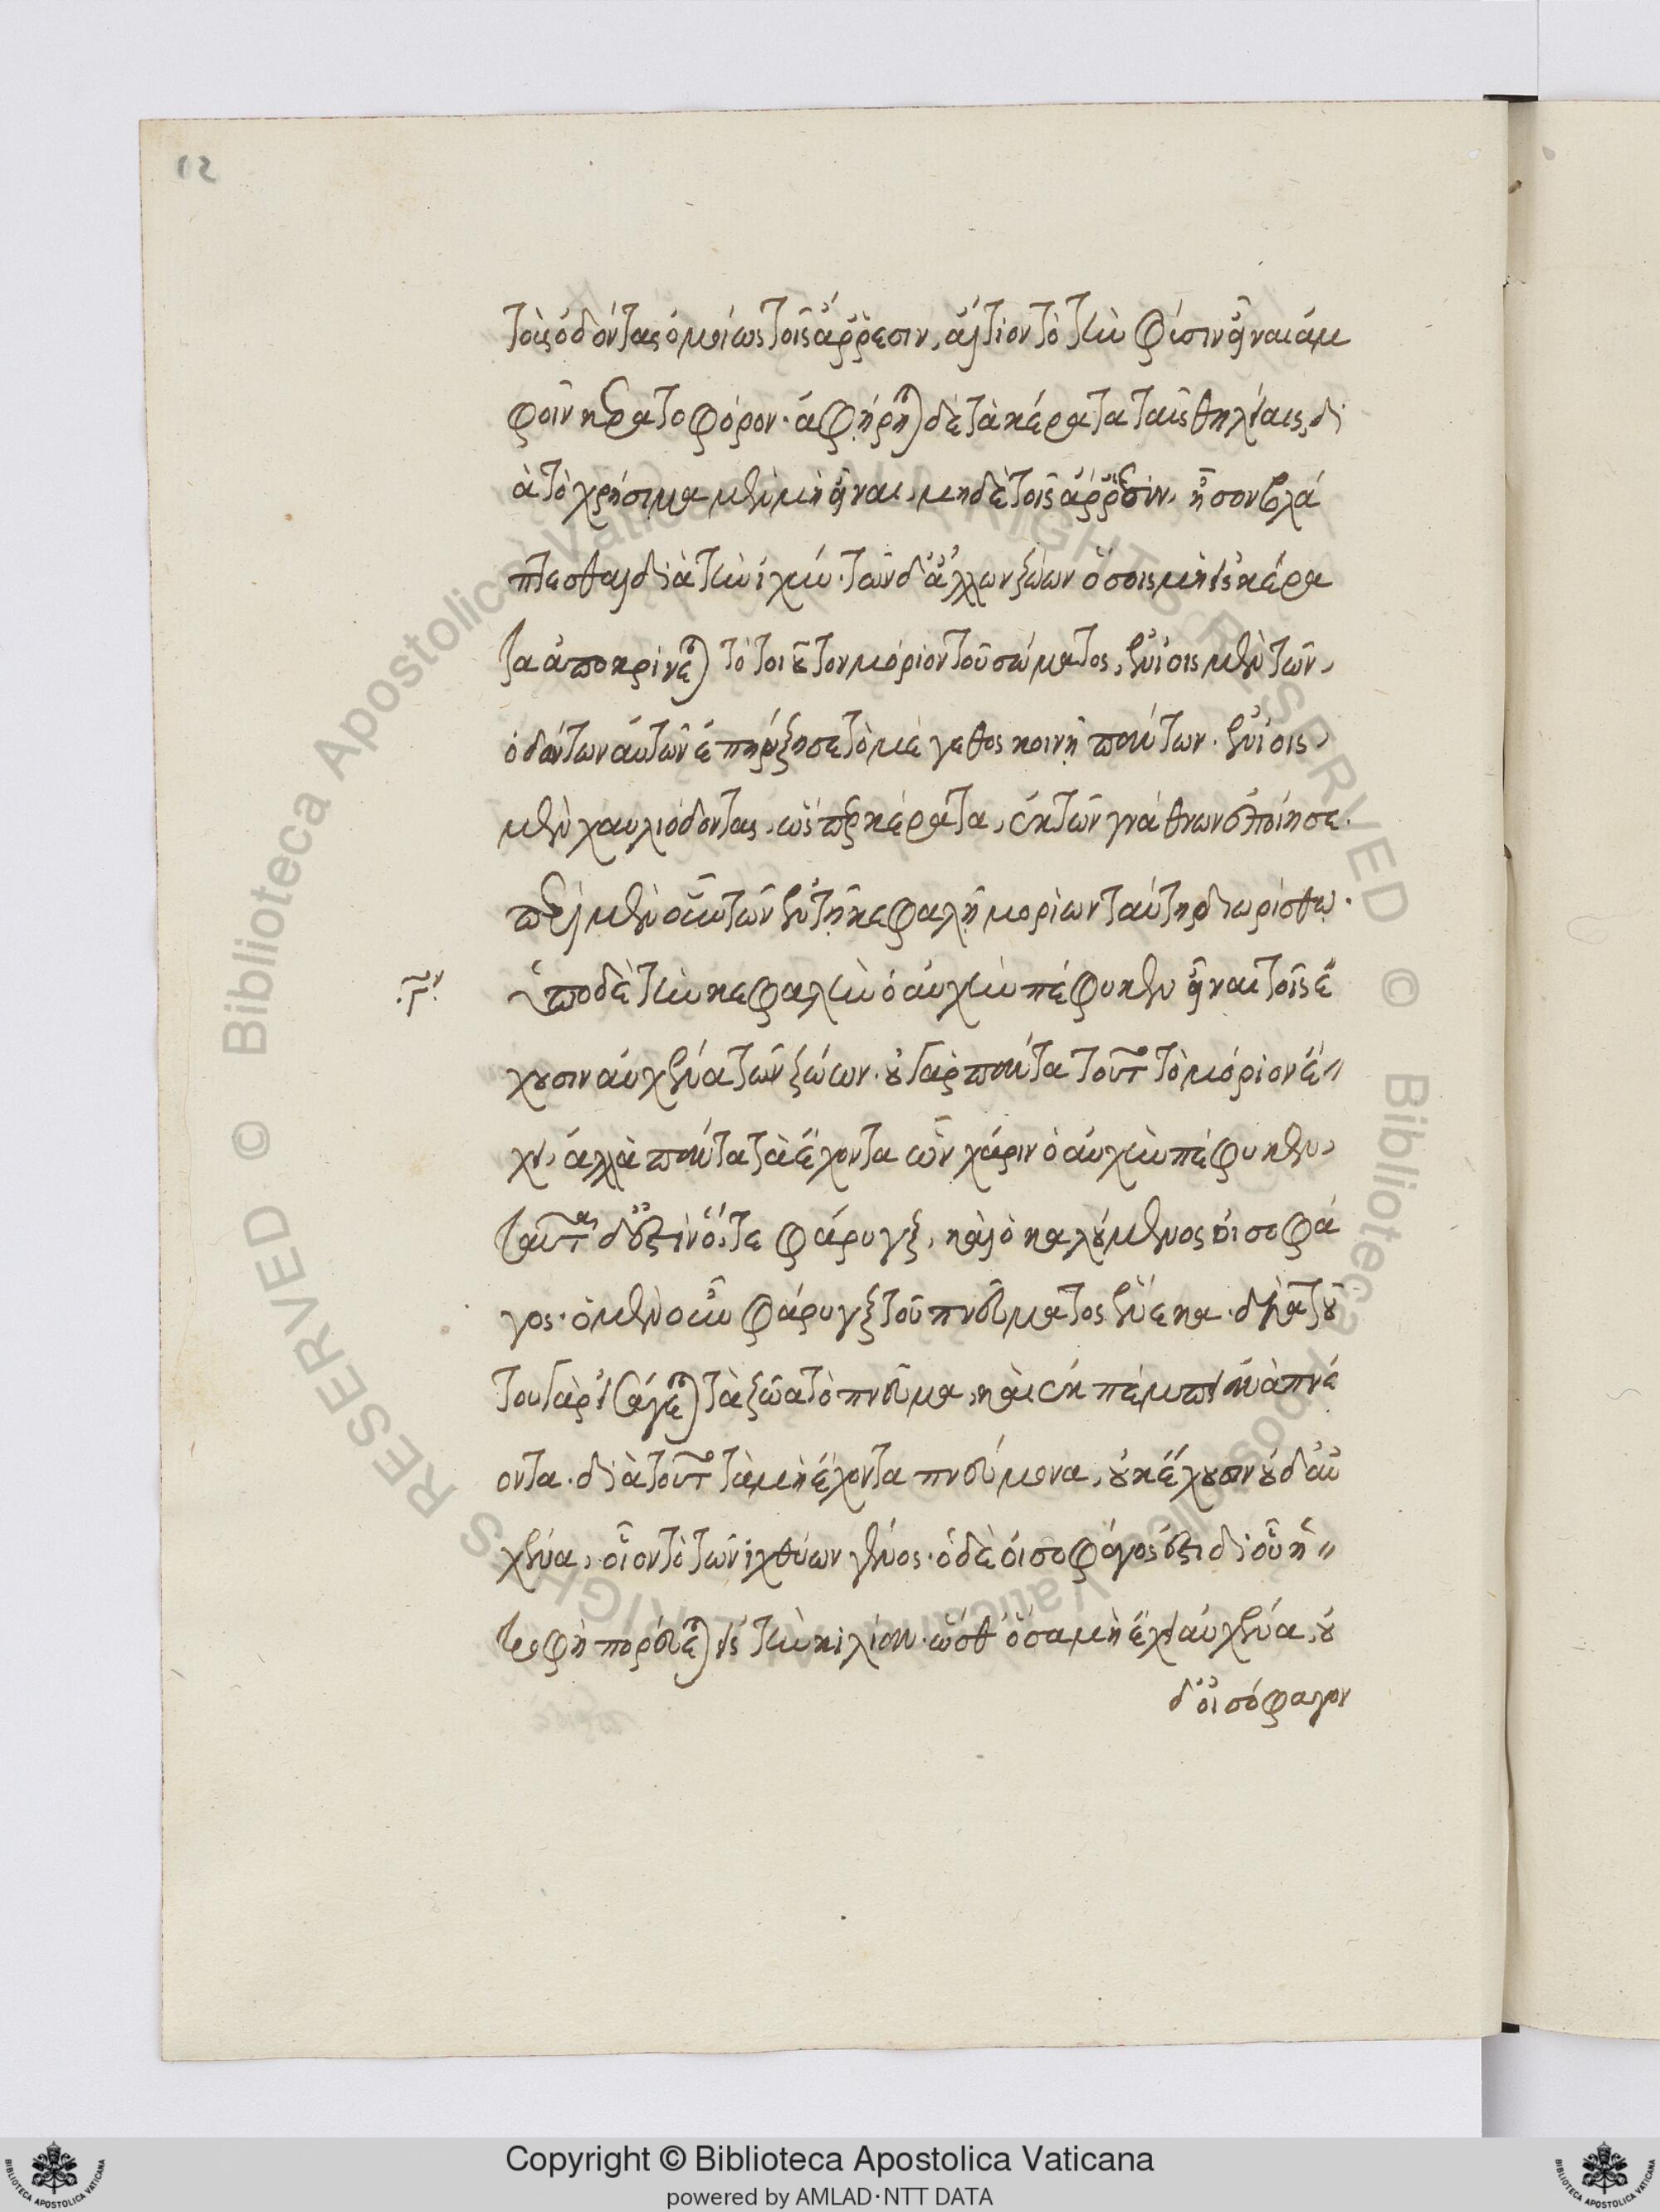 12
τοὺς ὀδόντας ὁμοίως τοῖς ἄρρεσιν, αἴτιον τὸ τὴν φύσιν εἶναι ἀμ
φοῖν κερατοφόρον· ἀφήρηται δὲ τὰ κέρατα ταῖς θηλείαις, δι
ὰ τὸ χρήσιμα μὲν μὴ εἶναι, μηδὲ τοῖς ἄρρεσιν, ἧσσον βλά
πτεσθαι διὰ τὴν ἰχύν· τῶν δ' ἄλλων ζώων ὅσοις μὴ εἰς κέρα
τα ἀποκρίνεται τὸ τοιοῦτον μόριον τοῦ σώματος, ἐνίοις μὲν τῶν
ὀδόντων αὐτῶν ἐπηύξησε τὸ μέγεθος κοινῇ πάντων· ἐνίοις
μὲν χαυλιόδοντας, ὥσπερ κέρατα, ἐκ τῶν γνάθων ἐποίησε·
περὶ μὲν οὖν τῶν ἐν τῇ κεφαλῇ μορίων ταύτῃ διωρίσθω·
.γ. Ὑπὸ δὲ τὴν κεφαλὴν ὁ αὐχὴν πέφυκεν εἶναι τοῖς ἔ
χουσιν αὐχένα τῶν ζώων· οὐ γὰρ πάντα τοῦτο τὸ μόριον ἔ〃
χει, ἀλλὰ πάντα τὰ ἔχοντα ὧν χάριν ὁ αὐχὴν πέφυκεν,
ταῦτα δ' ἐστὶν ὅ, τε φάρυγξ, καὶ ὁ καλούμενος οἰσοφά
γος· ὁ μὲν οὖν φάρυγξ τοῦ πνεύματος ἕνεκα· διὰ τού
του γὰρ εἰσάγεται τὰ ζῶα τὸ πνεῦμα, καὶ ἐκπέμπει ἀναπνέ
οντα· διὰ τοῦτο τὰ μὴ ἔχοντα πνεύμονα, οὐκ ἔχουσιν οὐδ' αὐ
χένα, οἷον τὸ τῶν ἰχθύων γένος· ὁ δὲ οἰσοφάγος ἐστὶ δι' οὗ ἡ〃
τροφὴ πορεύεται εἰς τὴν κοιλίαν· ὥσθ' ὅσα μὴ ἔχει αὐχένα, οὐ
δ' οἰσόφαγον
Copyright © Biblioteca Apostolica Vaticana
powered by AMLAD·NTT DATA